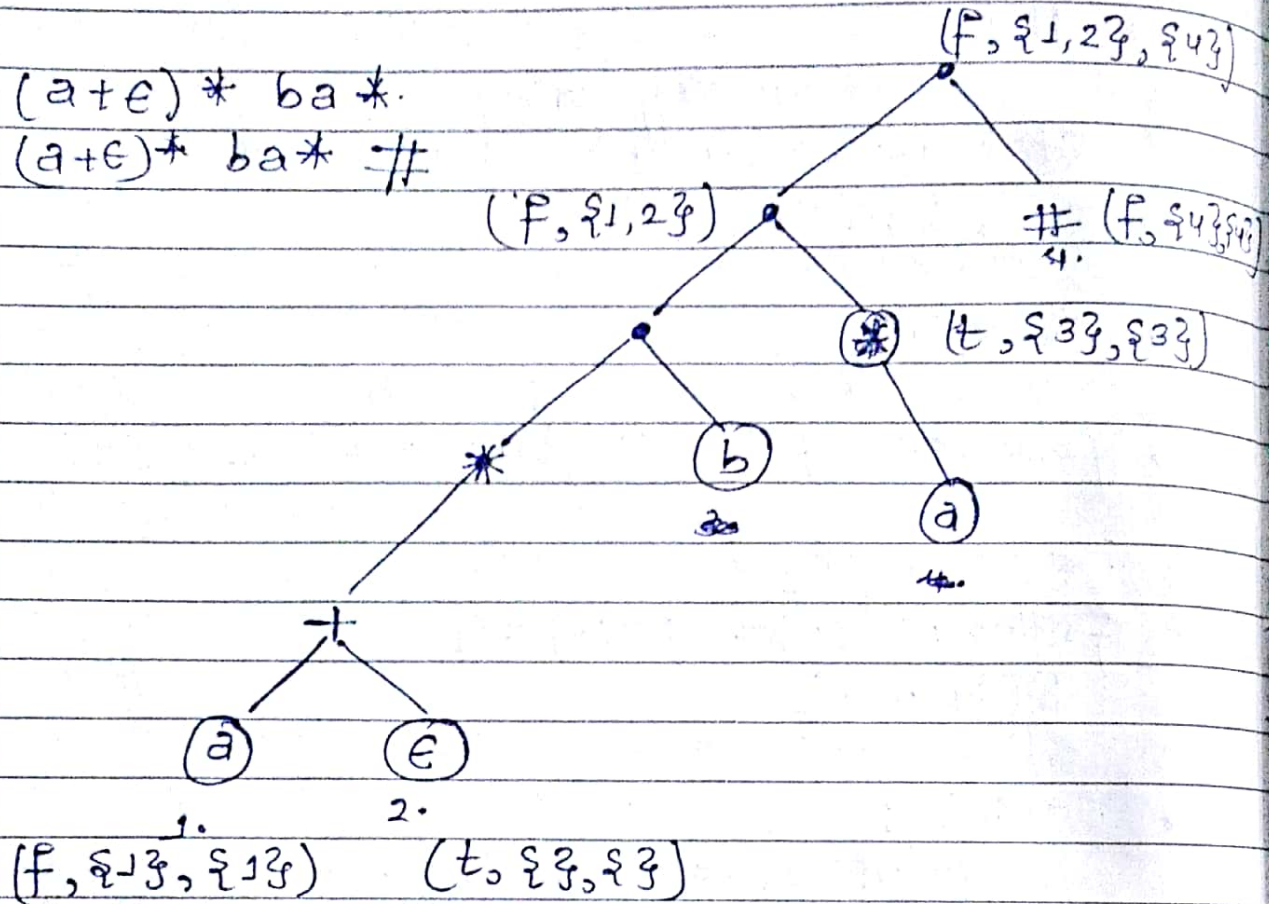 (f, {1,2}, {4})
(a+ϵ)* ba*.
(a+ϵ)* ba* #
(f, {1,2})
# (f, {4},{4})
4.
* (t, {3}, {3})
*
b
a
+
a
ϵ
1.
2.
(f, {1}, {1}) (t, {}, {})